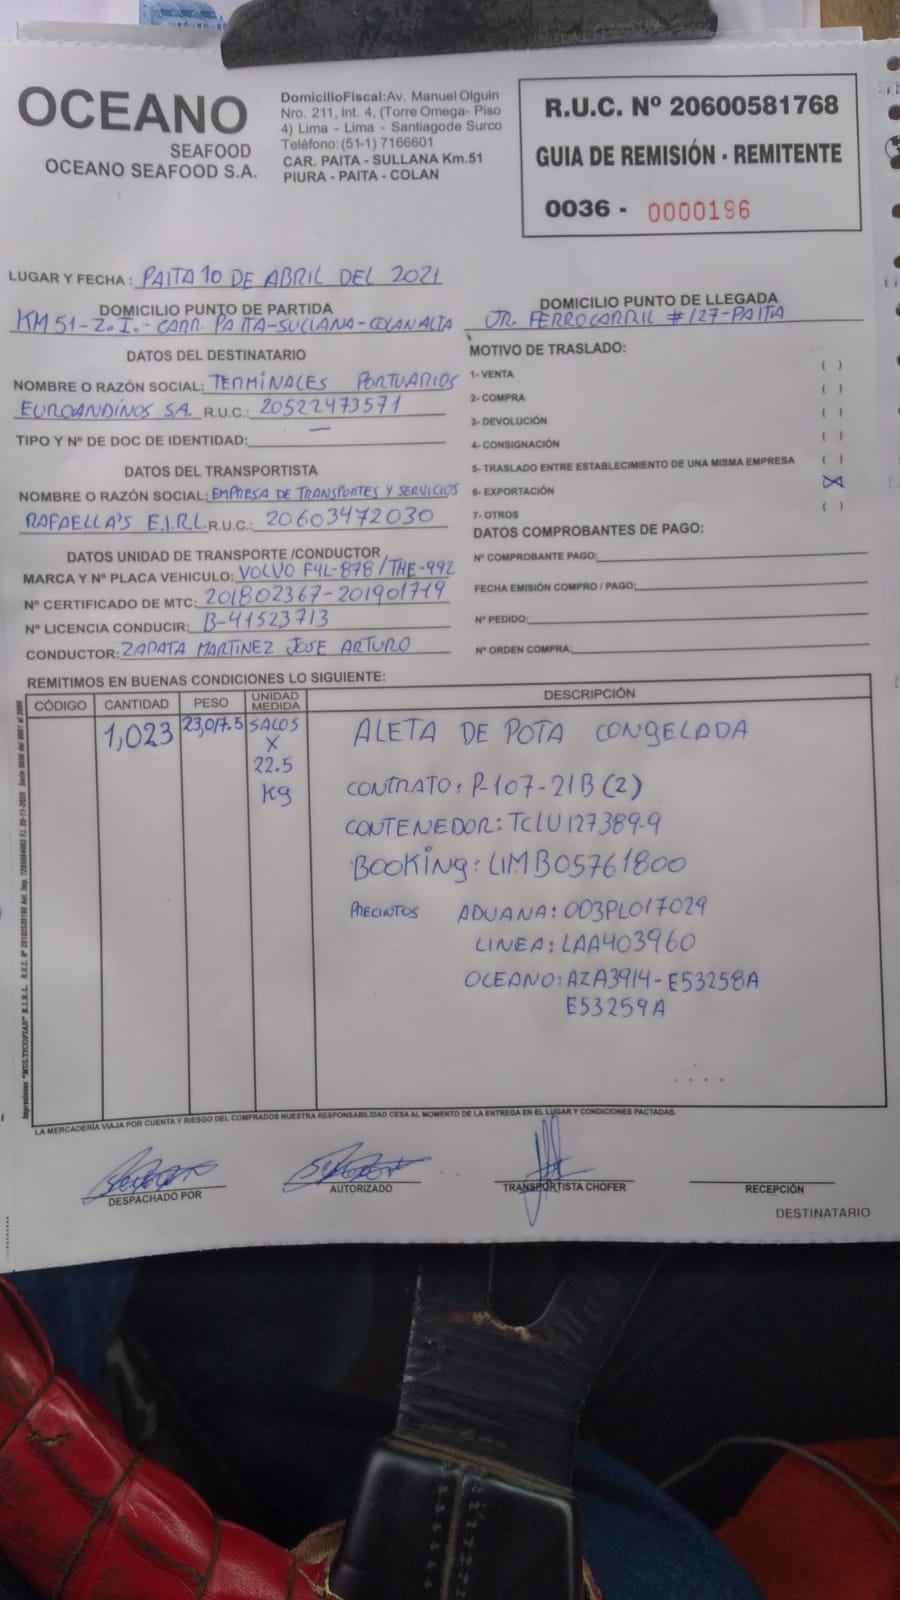 OCEANO
SEAFOOD
OCEANO SEAFOOD S.A.
DomicilioFiscal:Av. Manuel Olguin
Nro. 211, Int. 4, (Torre Omega- Piso
4) Lima - Lima - Santiagode Surco
Teléfono:(51-1) 7166601
CAR. PAITA - SULLANA Km.51
PIURA - PAITA - COLAN
R.U.C. Nº 20600581768
GUIA DE REMISIÓN - REMITENTE
0036 - 0000196
LUGAR Y FECHA : PAITA 10 DE ABRIL DEL 2021
DOMICILIO PUNTO DE PARTIDA
KM 51-Z.I.-CARR. PAITA-SULLANA-COLAN ALTA
DOMICILIO PUNTO DE LLEGADA
JR. FERROCARRIL #127-PAITA
DATOS DEL DESTINATARIO
NOMBRE O RAZÓN SOCIAL: TERMINALES PORTUARIOS
EUROANDINOS SA. R.U.C.: 20522473571
TIPO Y Nº DE DOC DE IDENTIDAD: —
DATOS DEL TRANSPORTISTA
NOMBRE O RAZÓN SOCIAL: EMPRESA DE TRANSPORTES Y SERVICIOS
RAFAELLA'S E.I.R.L R.U.C.: 20603472030
DATOS UNIDAD DE TRANSPORTE /CONDUCTOR
MARCA Y Nº PLACA VEHICULO: VOLVO F4L-878/THE-992
Nº CERTIFICADO DE MTC: 201802367-201901719
Nº LICENCIA CONDUCIR: B-41523713
CONDUCTOR: ZAPATA MARTINEZ JOSE ARTURO
MOTIVO DE TRASLADO:
1- VENTA ( )
2- COMPRA ( )
3- DEVOLUCIÓN ( )
4- CONSIGNACIÓN ( )
5- TRASLADO ENTRE ESTABLECIMIENTO DE UNA MISMA EMPRESA ( )
6- EXPORTACIÓN (X)
7- OTROS ( )
DATOS COMPROBANTES DE PAGO:
Nº COMPROBANTE PAGO:
FECHA EMISIÓN COMPRO / PAGO:
Nº PEDIDO:
Nº ORDEN COMPRA:
REMITIMOS EN BUENAS CONDICIONES LO SIGUIENTE:
CÓDIGO CANTIDAD PESO UNIDAD MEDIDA DESCRIPCIÓN
1,023 23,017.5 SACOS
X
22.5
Kg
ALETA DE POTA CONGELADA
CONTRATO: P-107-21B (2)
CONTENEDOR: TCLU 127389-9
BOOKING: LIMB05761800
PRECINTOS ADUANA: 003PL017029
LINEA: LAA403960
OCEANO: AZA3914-E53258A
E53259A
LA MERCADERÍA VIAJA POR CUENTA Y RIESGO DEL COMPRADOS NUESTRA RESPONSABILIDAD CESA AL MOMENTO DE LA ENTREGA EN EL LUGAR Y CONDICIONES PACTADAS.
DESPACHADO POR
AUTORIZADO
TRANSPORTISTA CHOFER
RECEPCIÓN
DESTINATARIO